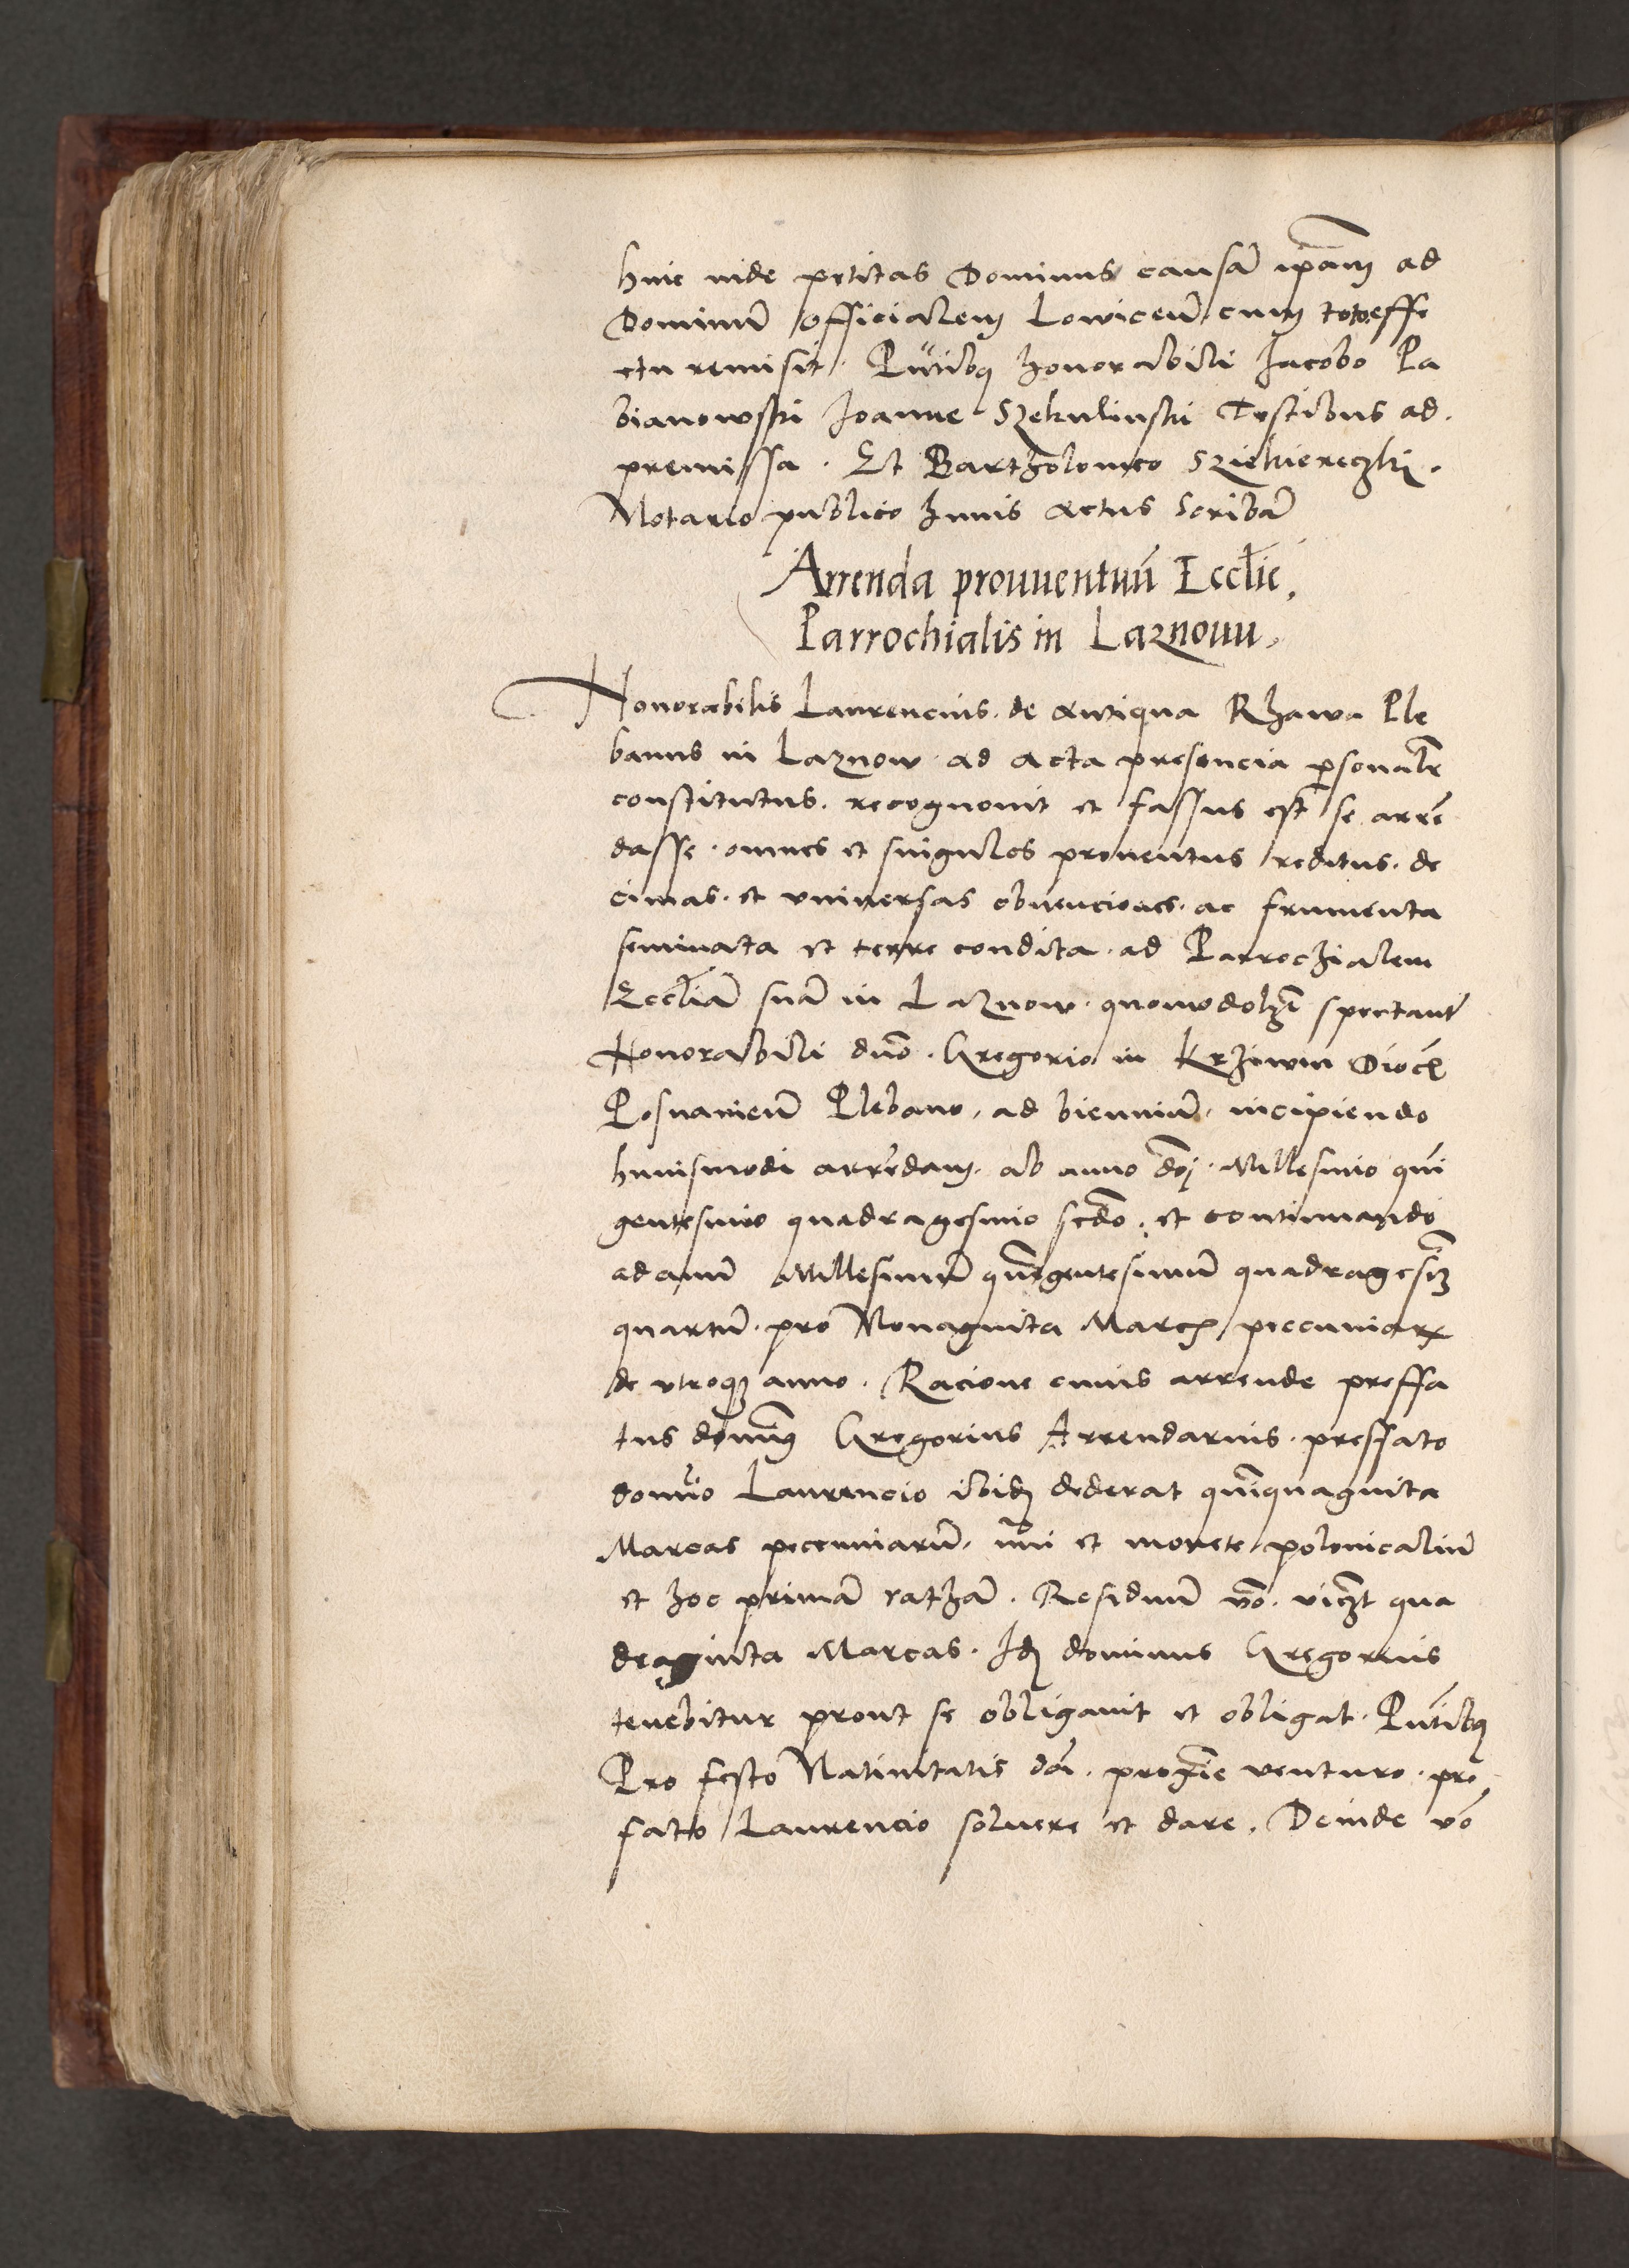 hinc inde petitas Dominus causã ipãm ad
Dominũ Officialem Lowiceñ cum toto effe
ctu remisit. Pñtibus honorabili Jacobo Pa
bianowski Joanne Szekulinski Testibus ad
premissa. Et Bartholomeo Sziekiereczki.
Notario publico huius actus scribã
Arrenda prouuentuũ Ecclie,
Parrochialis in Laznouu,
Honorabilis Laurencius de Antiqua Rhawa Ple
banus in Laznow ad acta presencia personalr
constitutus. recognouit et fassus est se arrẽ
dasse. omnes et singulos prouentus reditus. de
cimas. et vniuersas obuenciones. ac frumenta
seminata et terre condita. ad Parrochialem
Eccliã suã in Laznow. quomodolzt spectantes
Honorabili dño. Gregorio in Krziwin Dioc
Posnanieñ Plebano, ad bienniũ, incipiendo
huiusmodi arrẽdam. ab anno dñi. Millesimo qui
gentesimo quadragesimo scdo. et continuando
ad annũ Millesimũ quĩgentesimum quadragesim
quartũ. pro Nonaginta Marcis peccuniarum
de vtroque anno. Racione cuius arrende preffa
tus domins Gregorius Arrendarius. preffato
domino Laurencio ibidem dederat quĩquaginta
Marcas peccuniarũ. nũi et monete polonicaliũ
et hoc primã rathã. Residuum vo. viczt qua
draginta Marcas. Idem dominus Gregorius
tenebitur prout se obligauit et obligat. Pñtibus
Pro festo Natiuitatis dñi. proxie venturo. pre
fatto Laurencio soluere et dare. Deinde vo